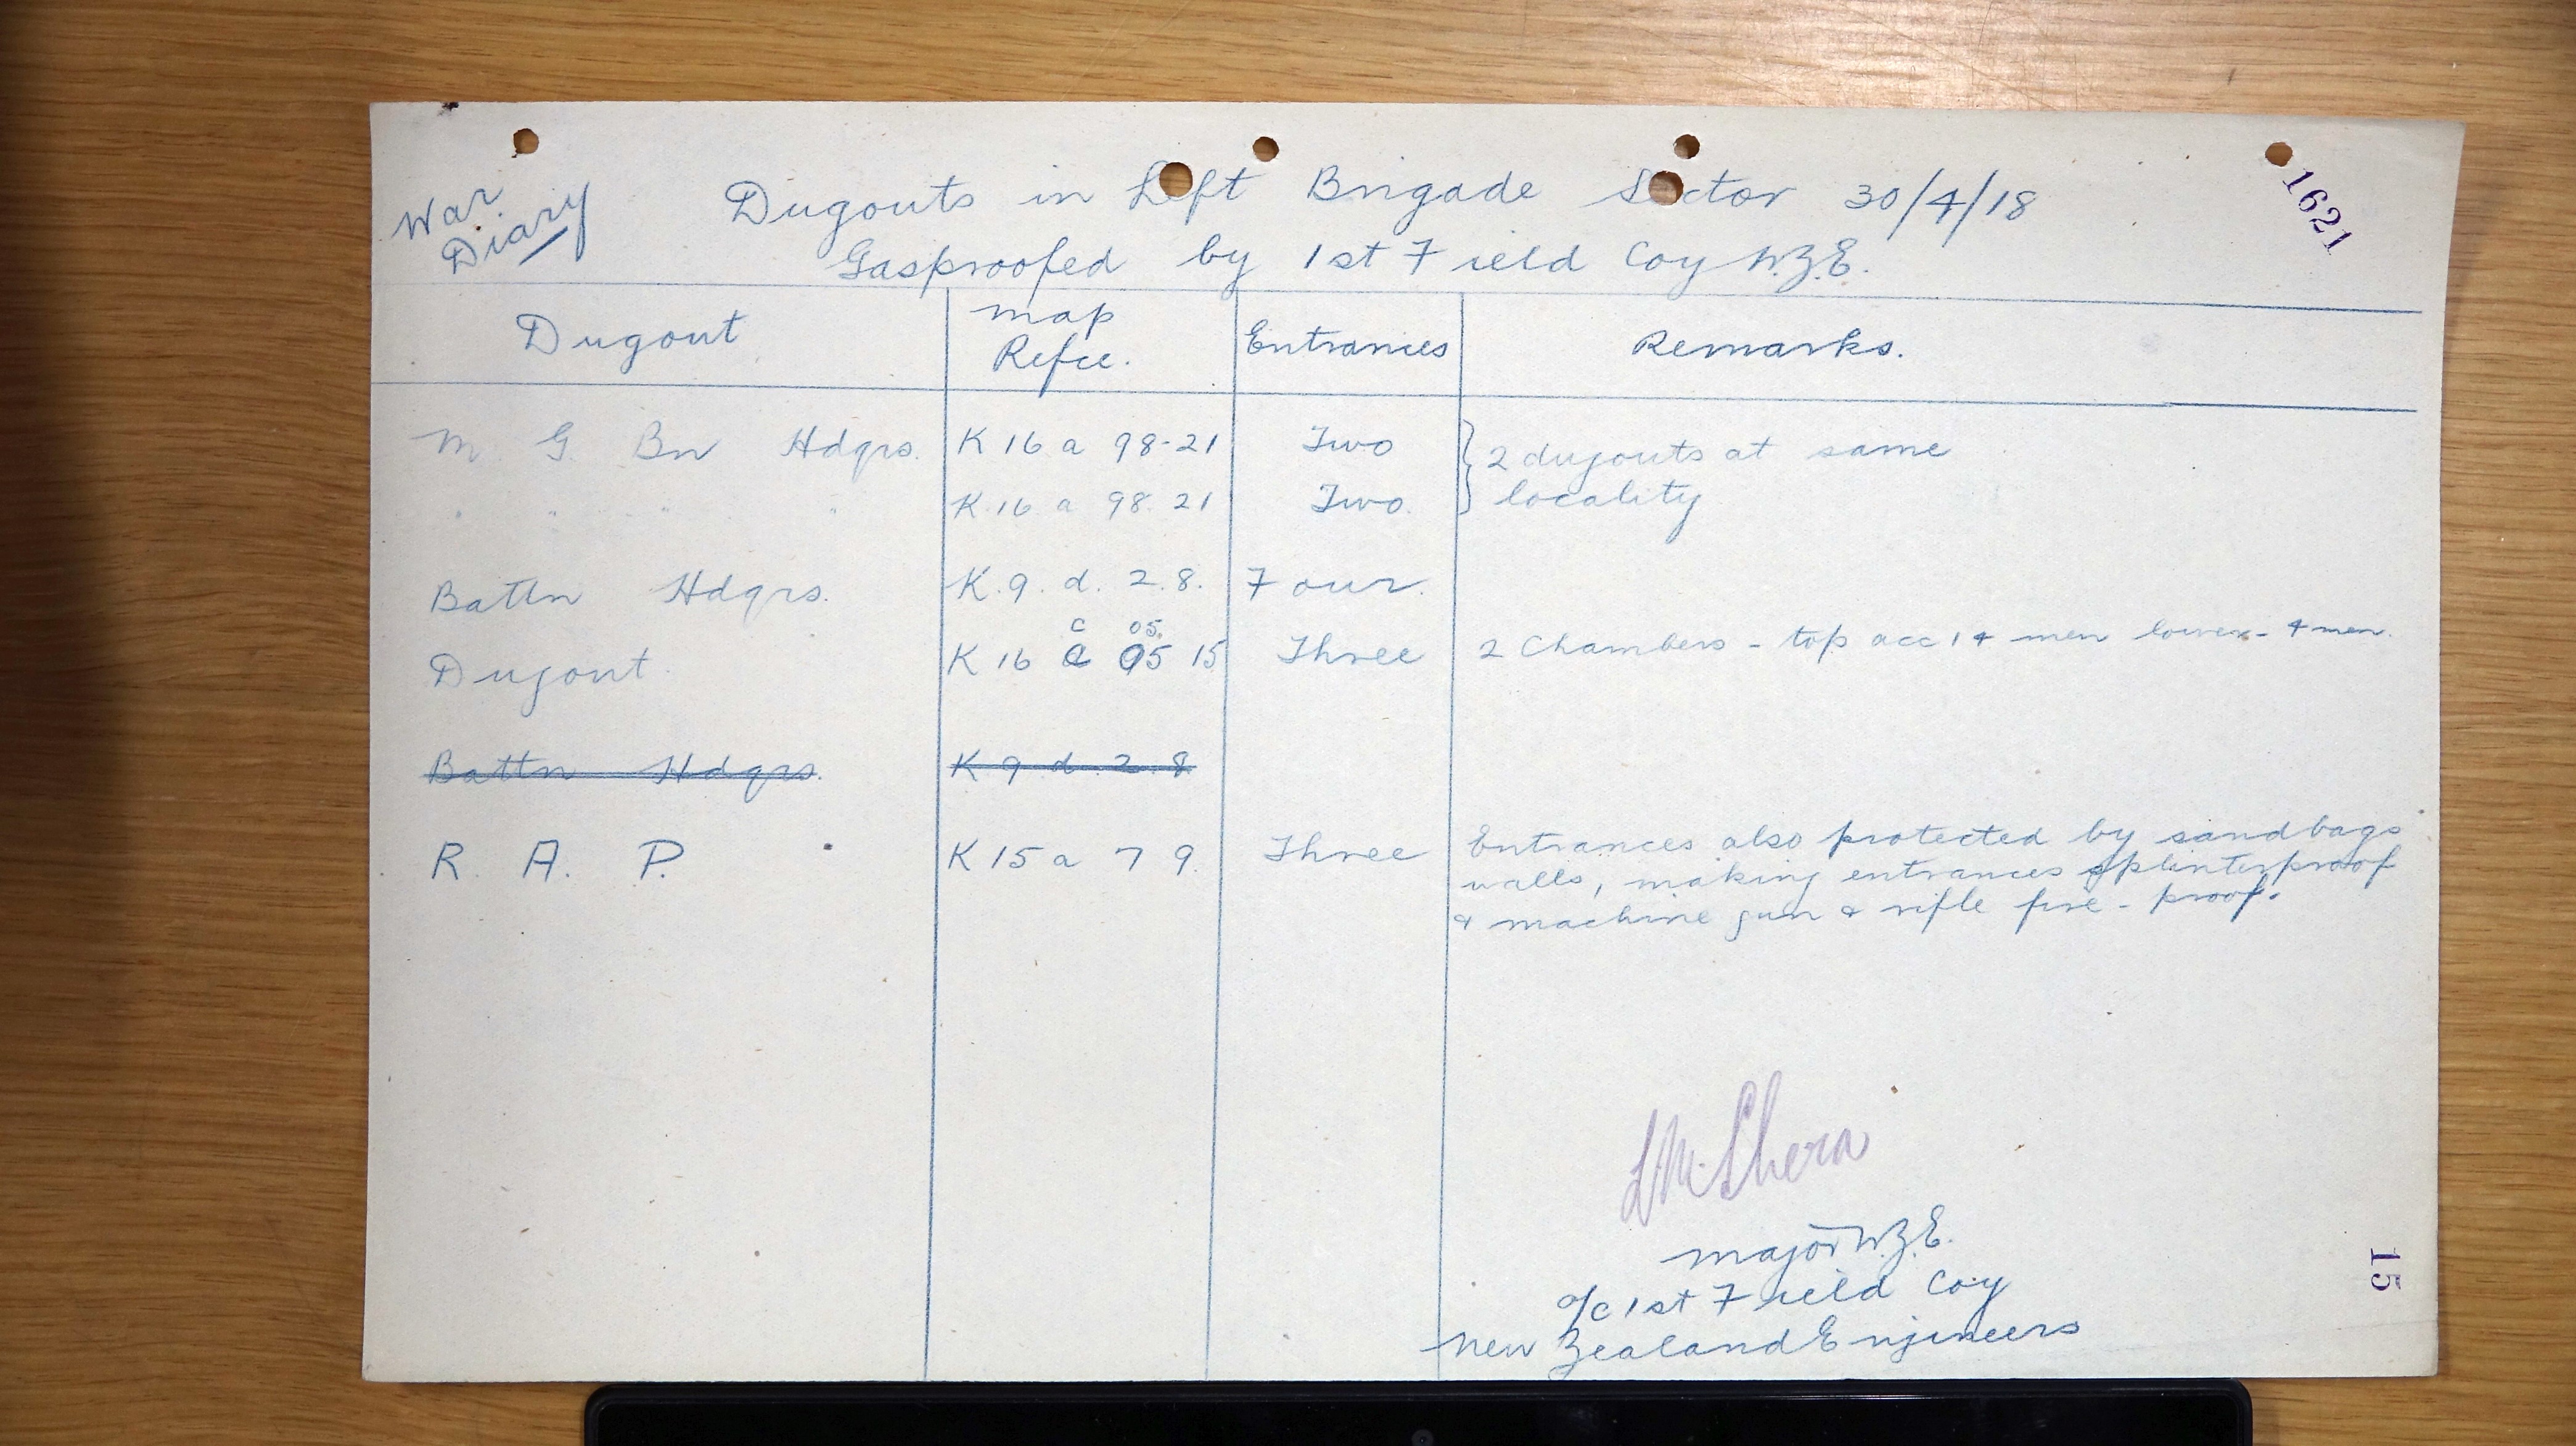 War
Diary
1621
Dugouts in Left Brigade Sector 30/4/18
Gasproofed by 1st Field Coy N.Z.E.
Dugout Map Refce. Entrances Remarks.
M. G. Bn Hdqrs. K 16 a 98-21 Two } 2 dugouts at same
" " " " K.16 a 98.21 Two. } locality
Battn Hdqrs. K.9.d.2.8. Four.
c 05.
Dugout. K 16 c 05 15 Three 2 Chambers - top acc 14 men lower - 4 men.
Battn Hdqrs. K 9 d 2.8
R. A. P. K 15 a 7 9. Three Entrances also protected by sandbags
walls, making entrances splinterproof
& machine gun & rifle fire - proof.
L M Shera
Major N.Z.E.
o/c 1st Field Coy
New Zealand Engineers
15